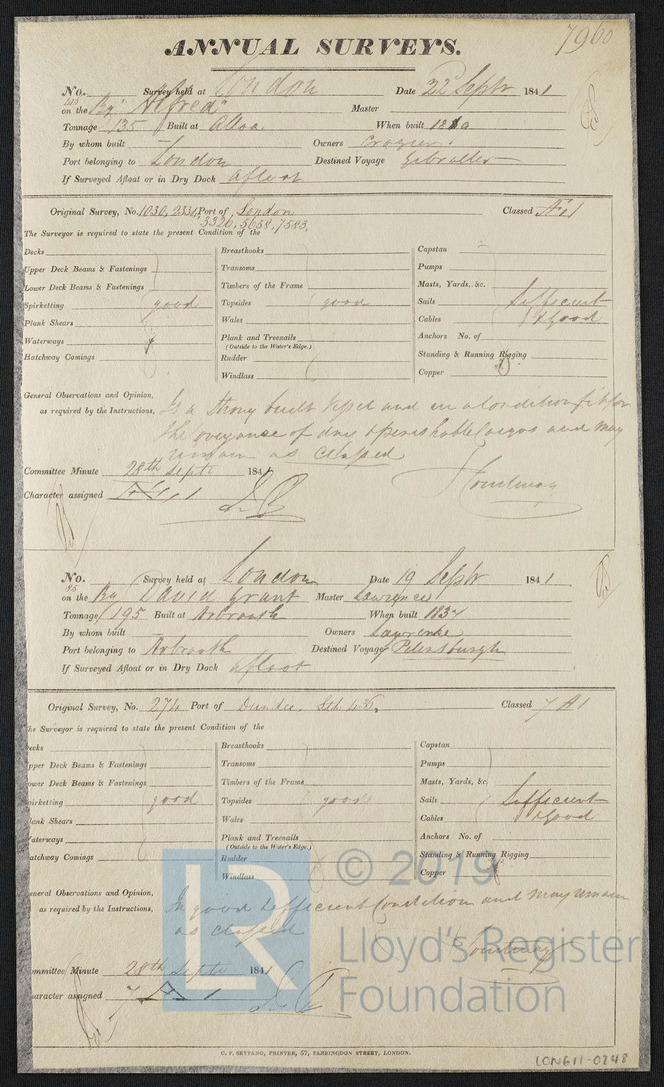 7960
ANNUAL SURVEYS.
No. Survey held at London Date 22 Septr 1841
on the Bg Alfred Master
Tonnage 135 Built at Alloa When built 1810
By whom built Owners Crozier
Port belonging to London Destined Voyage Gibralter
If Surveyed Afloat or in Dry Dock Afloat
Original Survey, No. 1030, 2331, Port of London Classed Æ1
3326, 5658, 7583,
The Surveyor is required to state the present Condition of the
Decks Breasthooks Capstan
Upper Deck Beams & Fastenings Transoms Pumps
Lower Deck Beams & Fastenings Timbers of the Frame Masts, Yards, &c.
Spirketting good Topsides good Sails Sufficient
Plank Shears Wales Cables & Good
Waterways Plank and Treenails Anchors No. of
(Outside to the Water's Edge.)
Hatchway Comings Rudder Standing & Running Rigging
Windlass Copper
General Observations and Opinion, Is a strong built Vessel and in a Condition fit for
as required by the Instructions, the conveyance of dry & perishable Cargos and may
remain as Classed
Committee Minute 28th Septr 1841 Courtenay
Character assigned Æ 1
No. Survey held at London Date 19 Septr 1841
on the Bg David Grant Master Lawrence
Tonnage 195 Built at Arbroath When built 1834
By whom built Owners Lawrence
Port belonging to Arbroath Destined Voyage Petersburgh
If Surveyed Afloat or in Dry Dock afloat
Original Survey, No. 274 Port of Dundee Classed 7 A 1
The Surveyor is required to state the present Condition of the
Decks Breasthooks Capstan
Upper Deck Beams & Fastenings Transoms Pumps
Lower Deck Beams & Fastenings Timbers of the Frame Masts, Yards, &c.
Spirketting good Topsides good Sails Sufficient
Plank Shears Wales Cables & Good
Waterways Plank and Treenails Anchors No. of
(Outside to the Water's Edge.)
Hatchway Comings Rudder Standing & Running Rigging
Windlass Copper
General Observations and Opinion, In good & efficient Condition and may remain
as required by the Instructions, as classed
Courtenay
Committee Minute 28th Septr 1841
Character assigned 7 A 1
LR
© 2019
Lloyd's Register
Foundation
C. F. SEYFANG, PRINTER, 57, FARRINGDON STREET, LONDON.
LCN611-0248